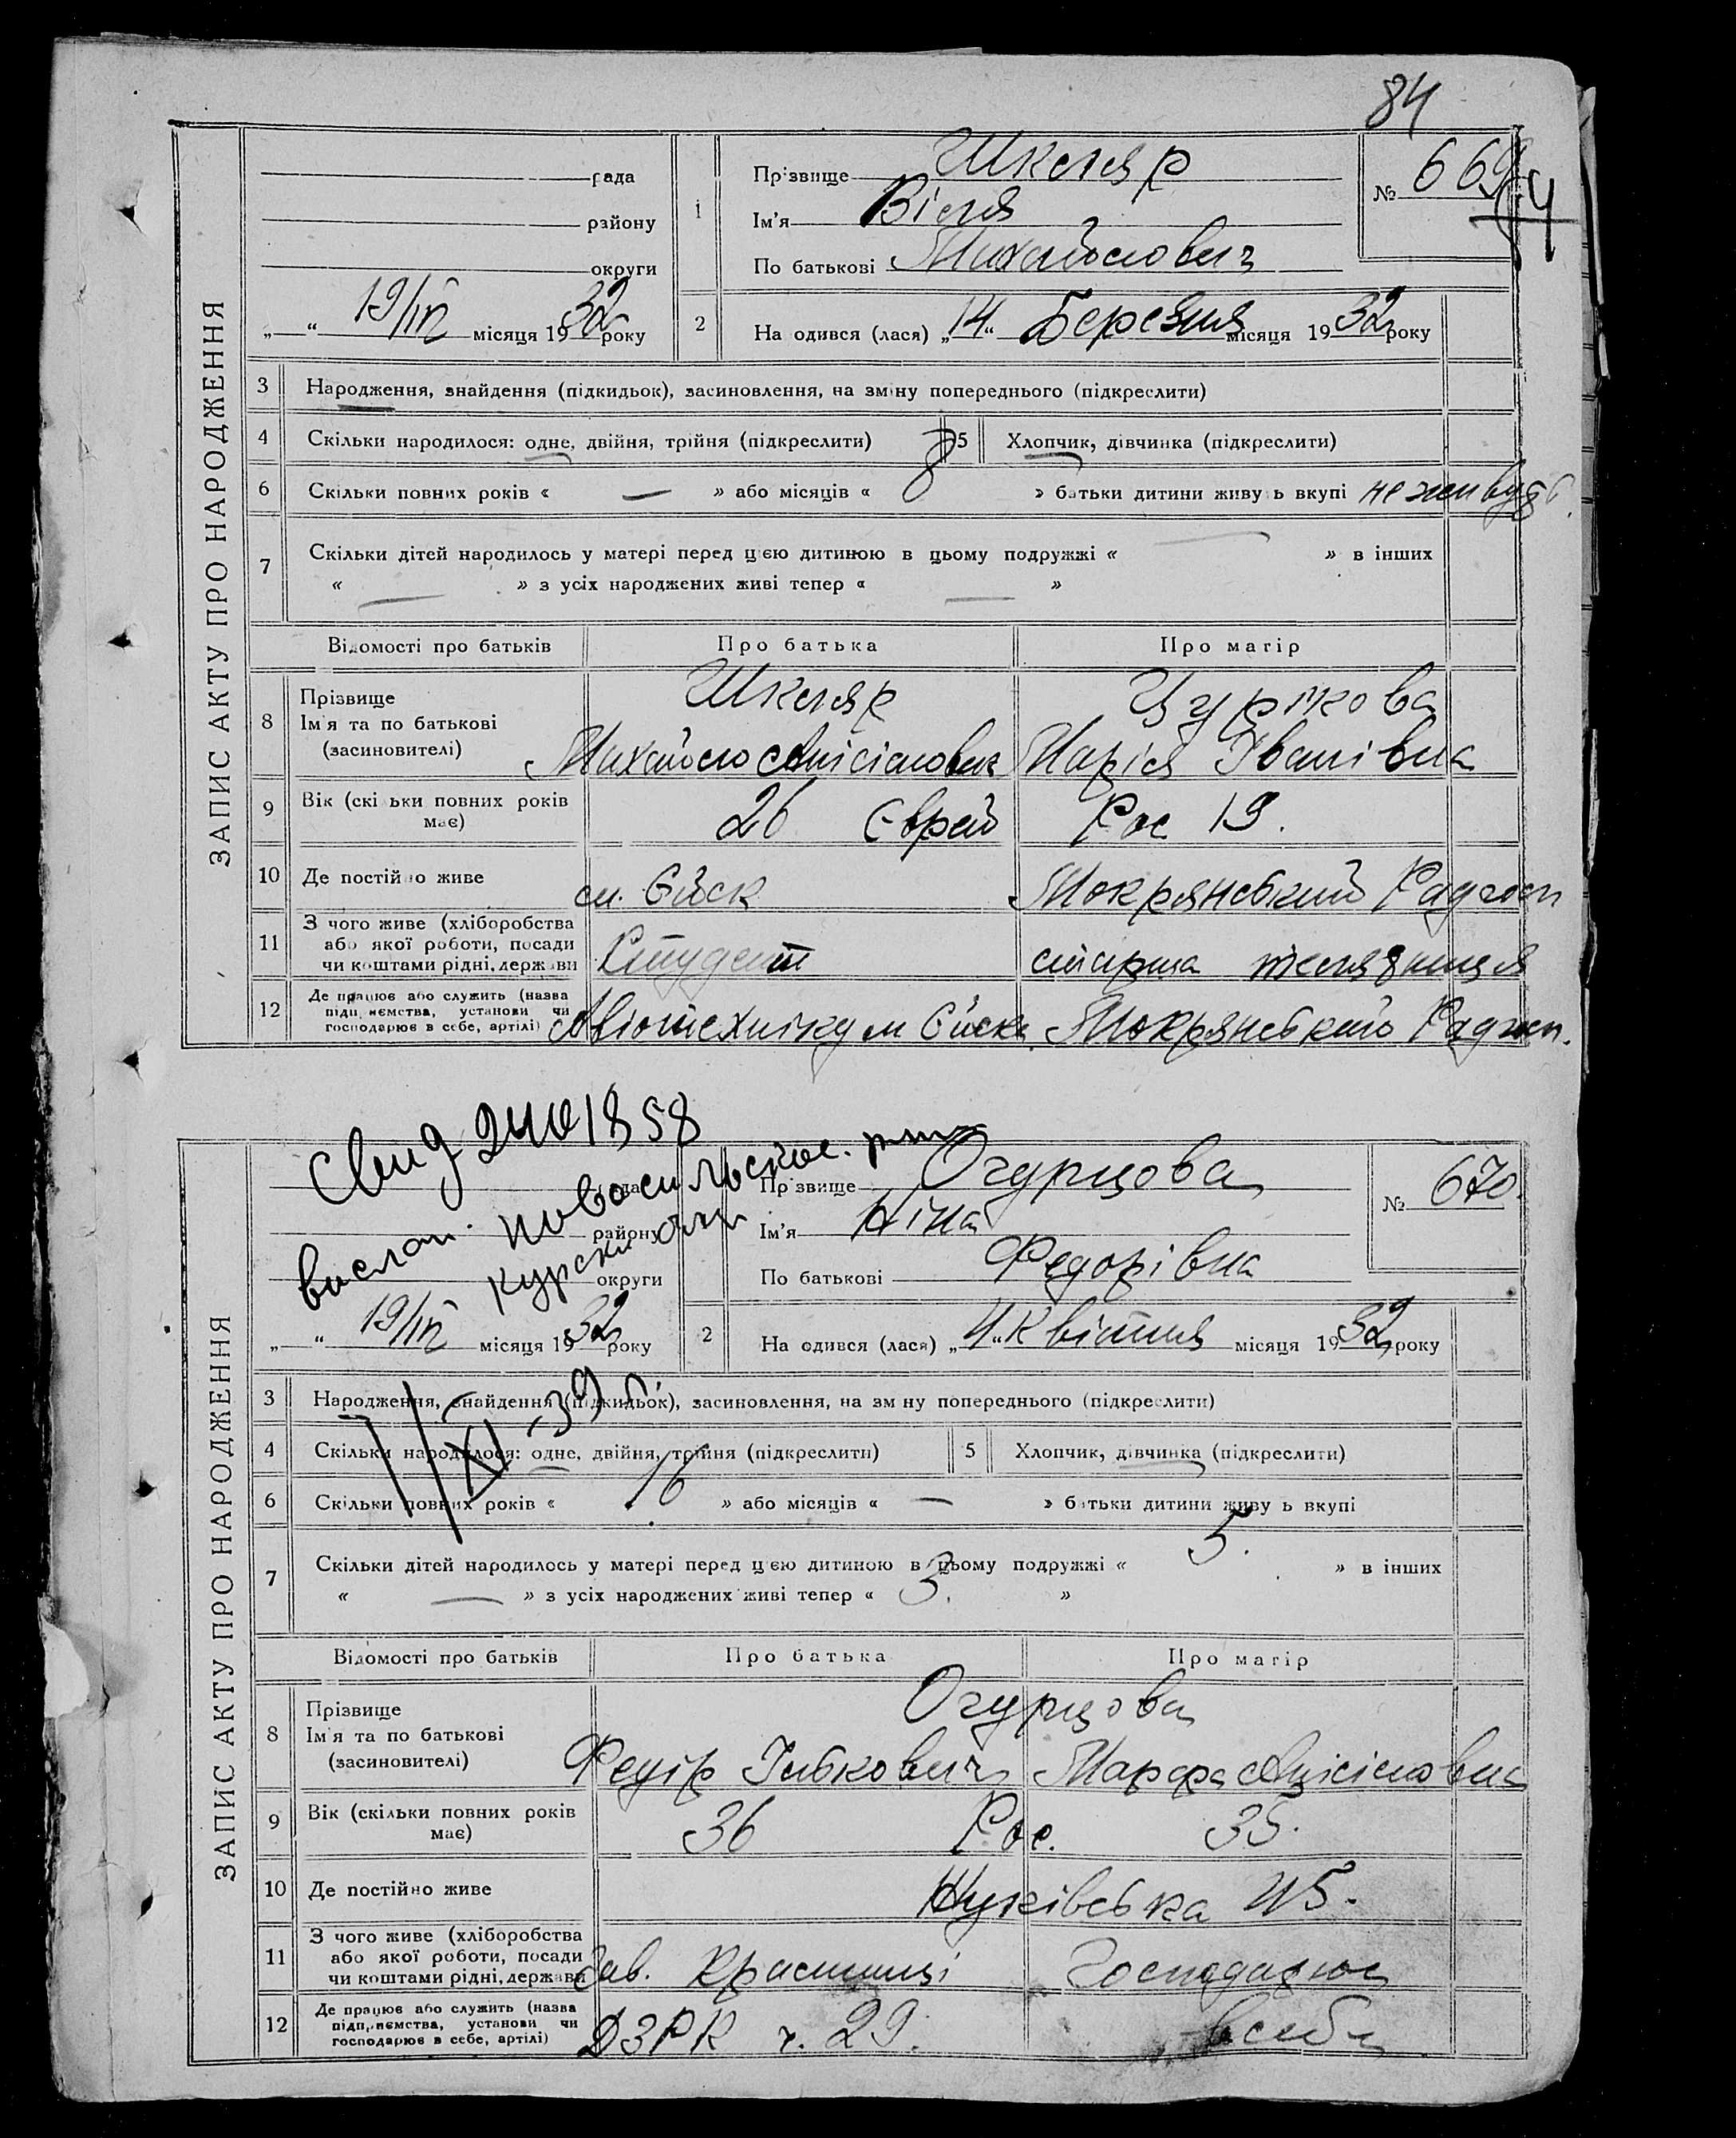 84
ЗАПИС АКТУ ПРО НАРОДЖЕННЯ
рада
району
округи
„ “ 19/IV місяця 1932 року
1
Прізвище Шкляр
Ім'я Віля
По батькові Михайлович
№ 669
2
На одився (лася) „14“ Березня місяця 1932 року
3 Народження, знайдення (підкидьок), засиновлення, на зміну попереднього (підкреслити)
4 Скільки народилося: одне, двійня, трійня (підкреслити) 5 Хлопчик, дівчинка (підкреслити)
6 Скільки повних років « — » або місяців « 8 » батьки дитини живу ь вкупі не живуть
7 Скільки дітей народилось у матері перед цією дитиною в цьому подружжі « — » в інших
« — » з усіх народжених живі тепер « — »
Відомості про батьків Про батька Про матір
8 Прізвище Шкляр
Ім'я та по батькові Михайло Марія Іванівна
(засиновителі)
9 Вік (скі ьки повних років має) 26 Єврей Рос 19.
10 Де постійно живе м. Єйск Мокрянський Радгосп
11 З чого живе (хліборобства
або якої роботи, посади
чи коштами рідні, держави Студент старша телятниця
12 Де працює або служить (назва
підп иємства, установи чи
господарює в себе, артілі) Авіотехнікум Єйск. Мокрянський Радгосп.
Свид 2401858
выслан. новосильское.
курск обл
7/XI-39
ЗАПИС АКТУ ПРО НАРОДЖЕННЯ
рада
району
округи
„ “ 19/IV місяця 1932 року
Прізвище Огурцова
Ім'я Ніна
По батькові Федорівна
№ 670.
2
На одився (лася) „4“ Квітня місяця 1932 року
3 Народження, знайдення (підкидьок), засиновлення, на зм ну попереднього (підкреслити)
4 Скільки народилося: одне, двійня, трійня (підкреслити) 5 Хлопчик, дівчинка (підкреслити)
6 Скільки повних років « 16 » або місяців « — » батьки дитини живу ь вкупі
7 Скільки дітей народилось у матері перед цією дитиною в цьому подружжі « 5. » в інших
« — » з усіх народжених живі тепер « 3. »
Відомості про батьків Про батька Про матір
8 Прізвище Огурцова
Ім'я та по батькові Федір Ількович Марфа
(засиновителі)
9 Вік (скільки повних років має) 36 Рос. 35.
10 Де постійно живе 45.
11 З чого живе (хліборобства
або якої роботи, посади
чи коштами рідні, держави Зав. крамниці Господарює
12 Де працює або служить (назва
підприємства, установи чи
господарює в себе, артілі) ДЗРК ч. 29. в себе